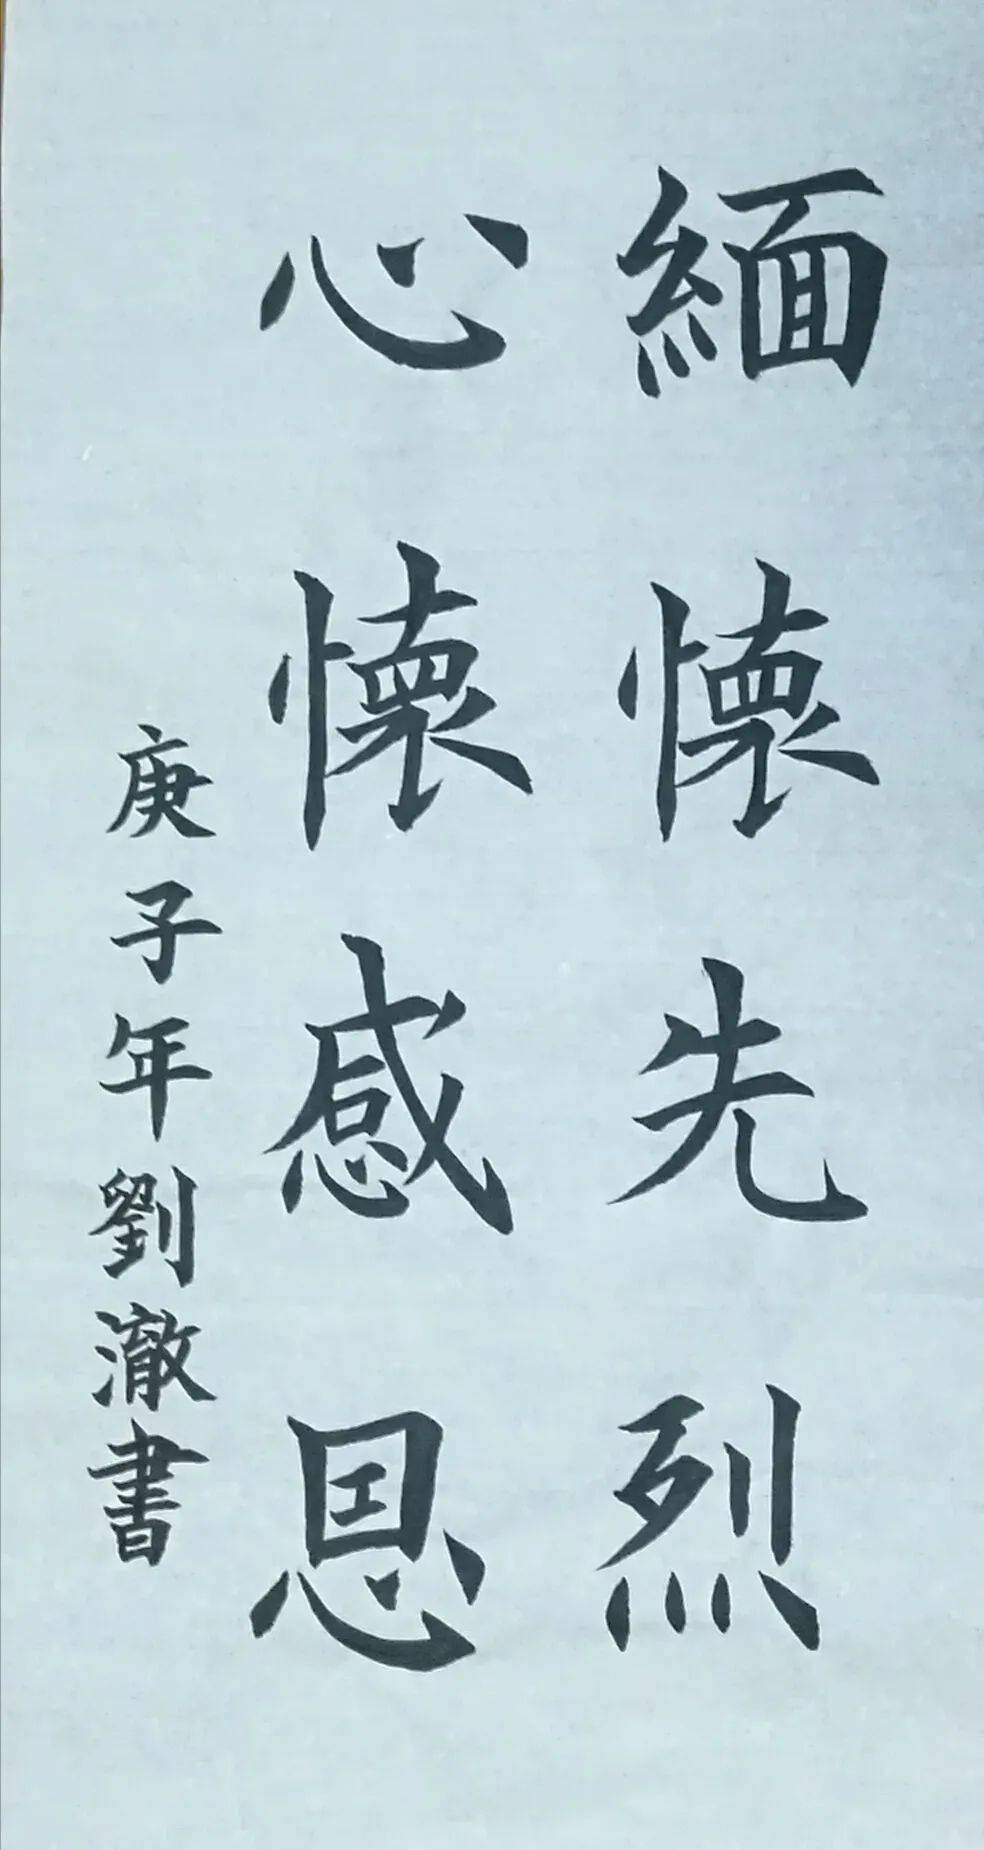 緬懷先烈
心懷感恩
庚子年劉澈書